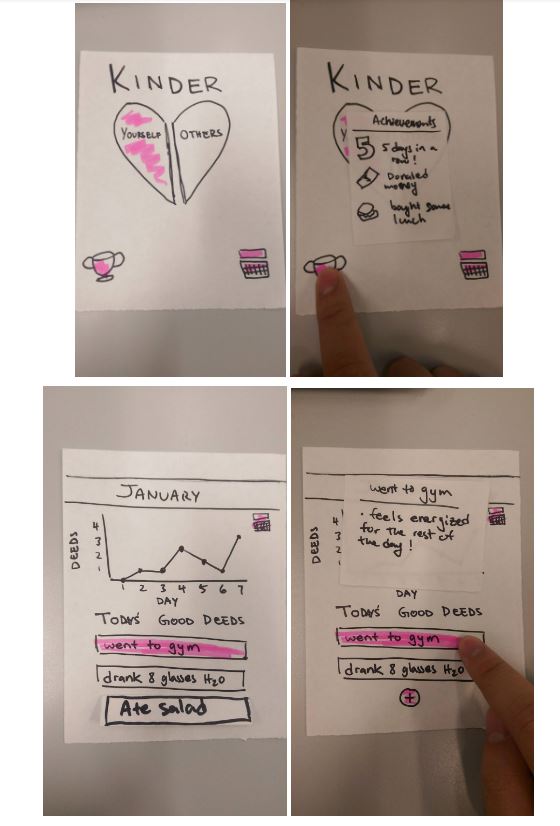 KINDER
YOURSELF
OTHERS
KINDER
Y
Achievements
5
5 days in a
row!
Donated
money
bought someone
lunch
JANUARY
DEEDS
4
3
2
1
1 2 3 4 5 6 7
DAY
TODAY'S GOOD DEEDS
went to gym
drank 8 glasses H2O
Ate salad
went to gym
• feels energized
for the rest of
the day!
DEEDS
4
3
2
1
DAY
TODAY'S GOOD DEEDS
went to gym
drank 8 glasses H2O
+